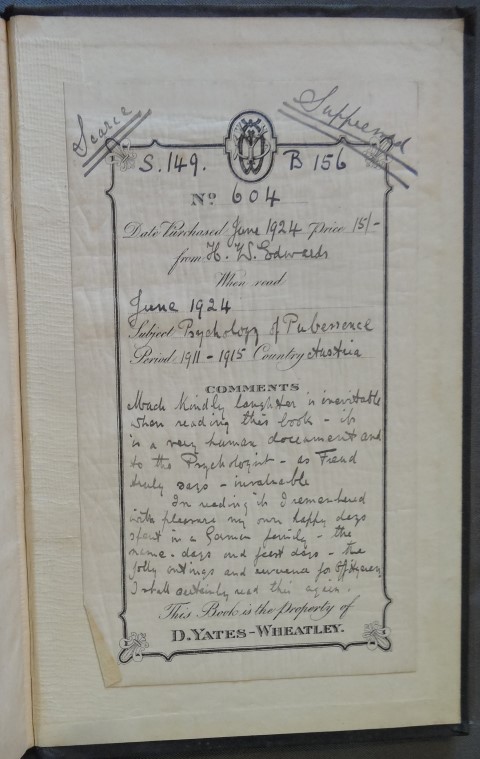 Scarce
Suppressed
S. 149. B 156
No 604
Date Purchased June 1924 Price 15/-
from H. W. Edwards
When read
June 1924
Subject Psychology of Pubescence
Period 1911 - 1915 Country Austria
COMMENTS
Much kindly laughter is inevitable
when reading this book - it
is a very human document and
to the Psychologist - as Freud
truly says - invaluable
In reading it I remembered
with pleasure my own happy days
spent in a German family - the
name-days and feast days - the
jolly outings and
I shall certainly read this again.
This Book is the Property of
D. YATES-WHEATLEY.